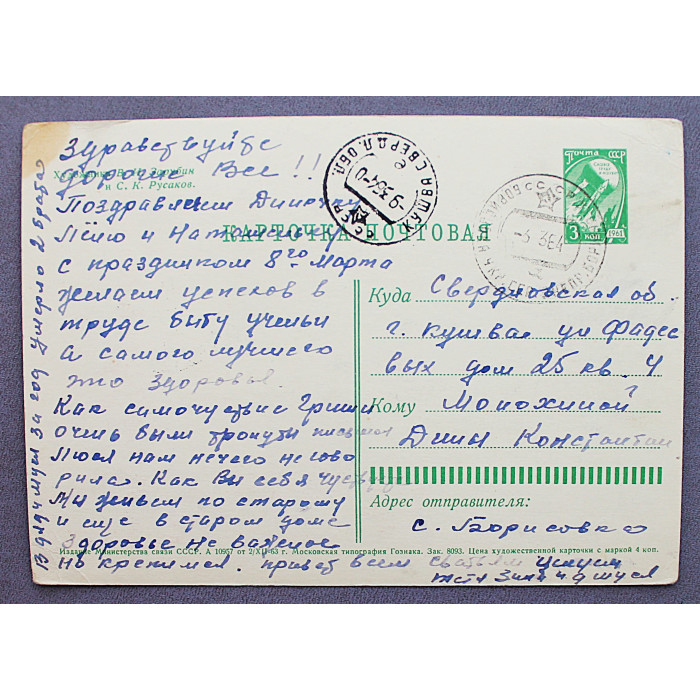 Здравствуйте
дорогие Все!!
Художники В. И. Зарубин
и С. К. Русаков.
Поздравляем Диночку
Лёлю и Наташеньку
с праздником 8го Марта
желаем успехов в
труде быту учёбы
а самого лучшего
это здоровья.
Как самочуствие Гриши
очень были тронуты письмом
Люся нам нечего не гово
рила. Как Вы себя чуствуете
Мы живьём по старому
и еще в старом доме
Здоровье не важное
но крепимся. привет всем сватьям целуем
тётя Зина дядя Муся
В дяди Муси за год умерло 2 брата
КАРТОЧКА ПОЧТОВАЯ
ПОЧТА СССР
3 КОП. 1961
СВЕРДЛ. ОБЛ.
-9 3 64
-6 3 64
Куда Свердловская об.
г. кушва ул Фадее
вых дом 25 кв. 4
Кому Мопохиной
Дины Константин
Адрес отправителя:
с. Борисовка
Издание Министерства связи СССР. А 10957 от 2/XII-63 г. Московская типография Гознака. Зак. 8093. Цена художественной карточки с маркой 4 коп.